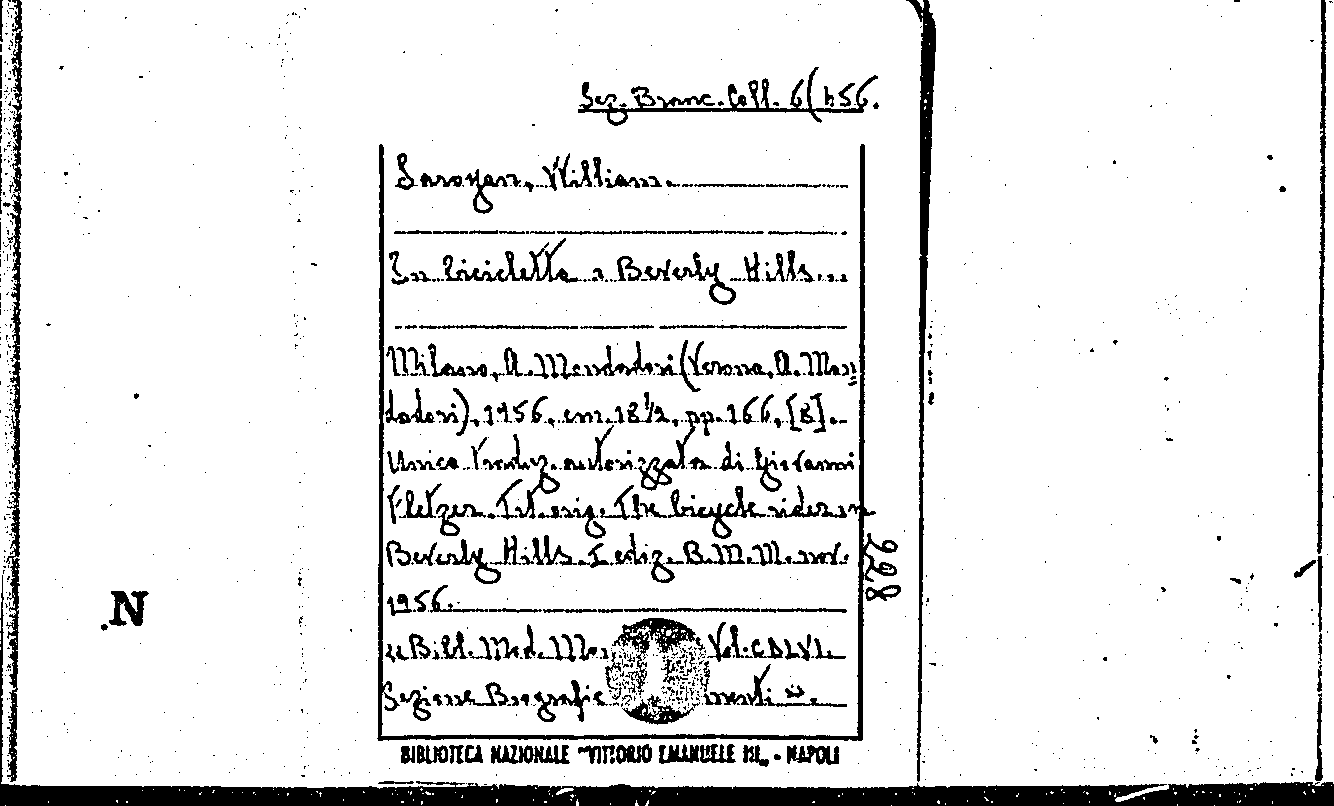 Sez. Branc. Coll. 6(h56.
Saroyan, William.
In bicicletta a Beverly Hills...
Milano, A. Mondadori (Verona, A. Mon=
dadori), 1956, cm. 18½, pp. 166, [8].
Unica traduz. autorizzata di Giovanni
Fletzer. Tit. orig. The bicycle rider in
Beverly Hills. I ediz. B.M.M. nov.
1956.
228
N.
"Bibl. Mod. Mo Vol. CDLVI.
Sezione Biografie menti".
BIBLIOTECA NAZIONALE "VITTORIO EMANUELE III„ - NAPOLI